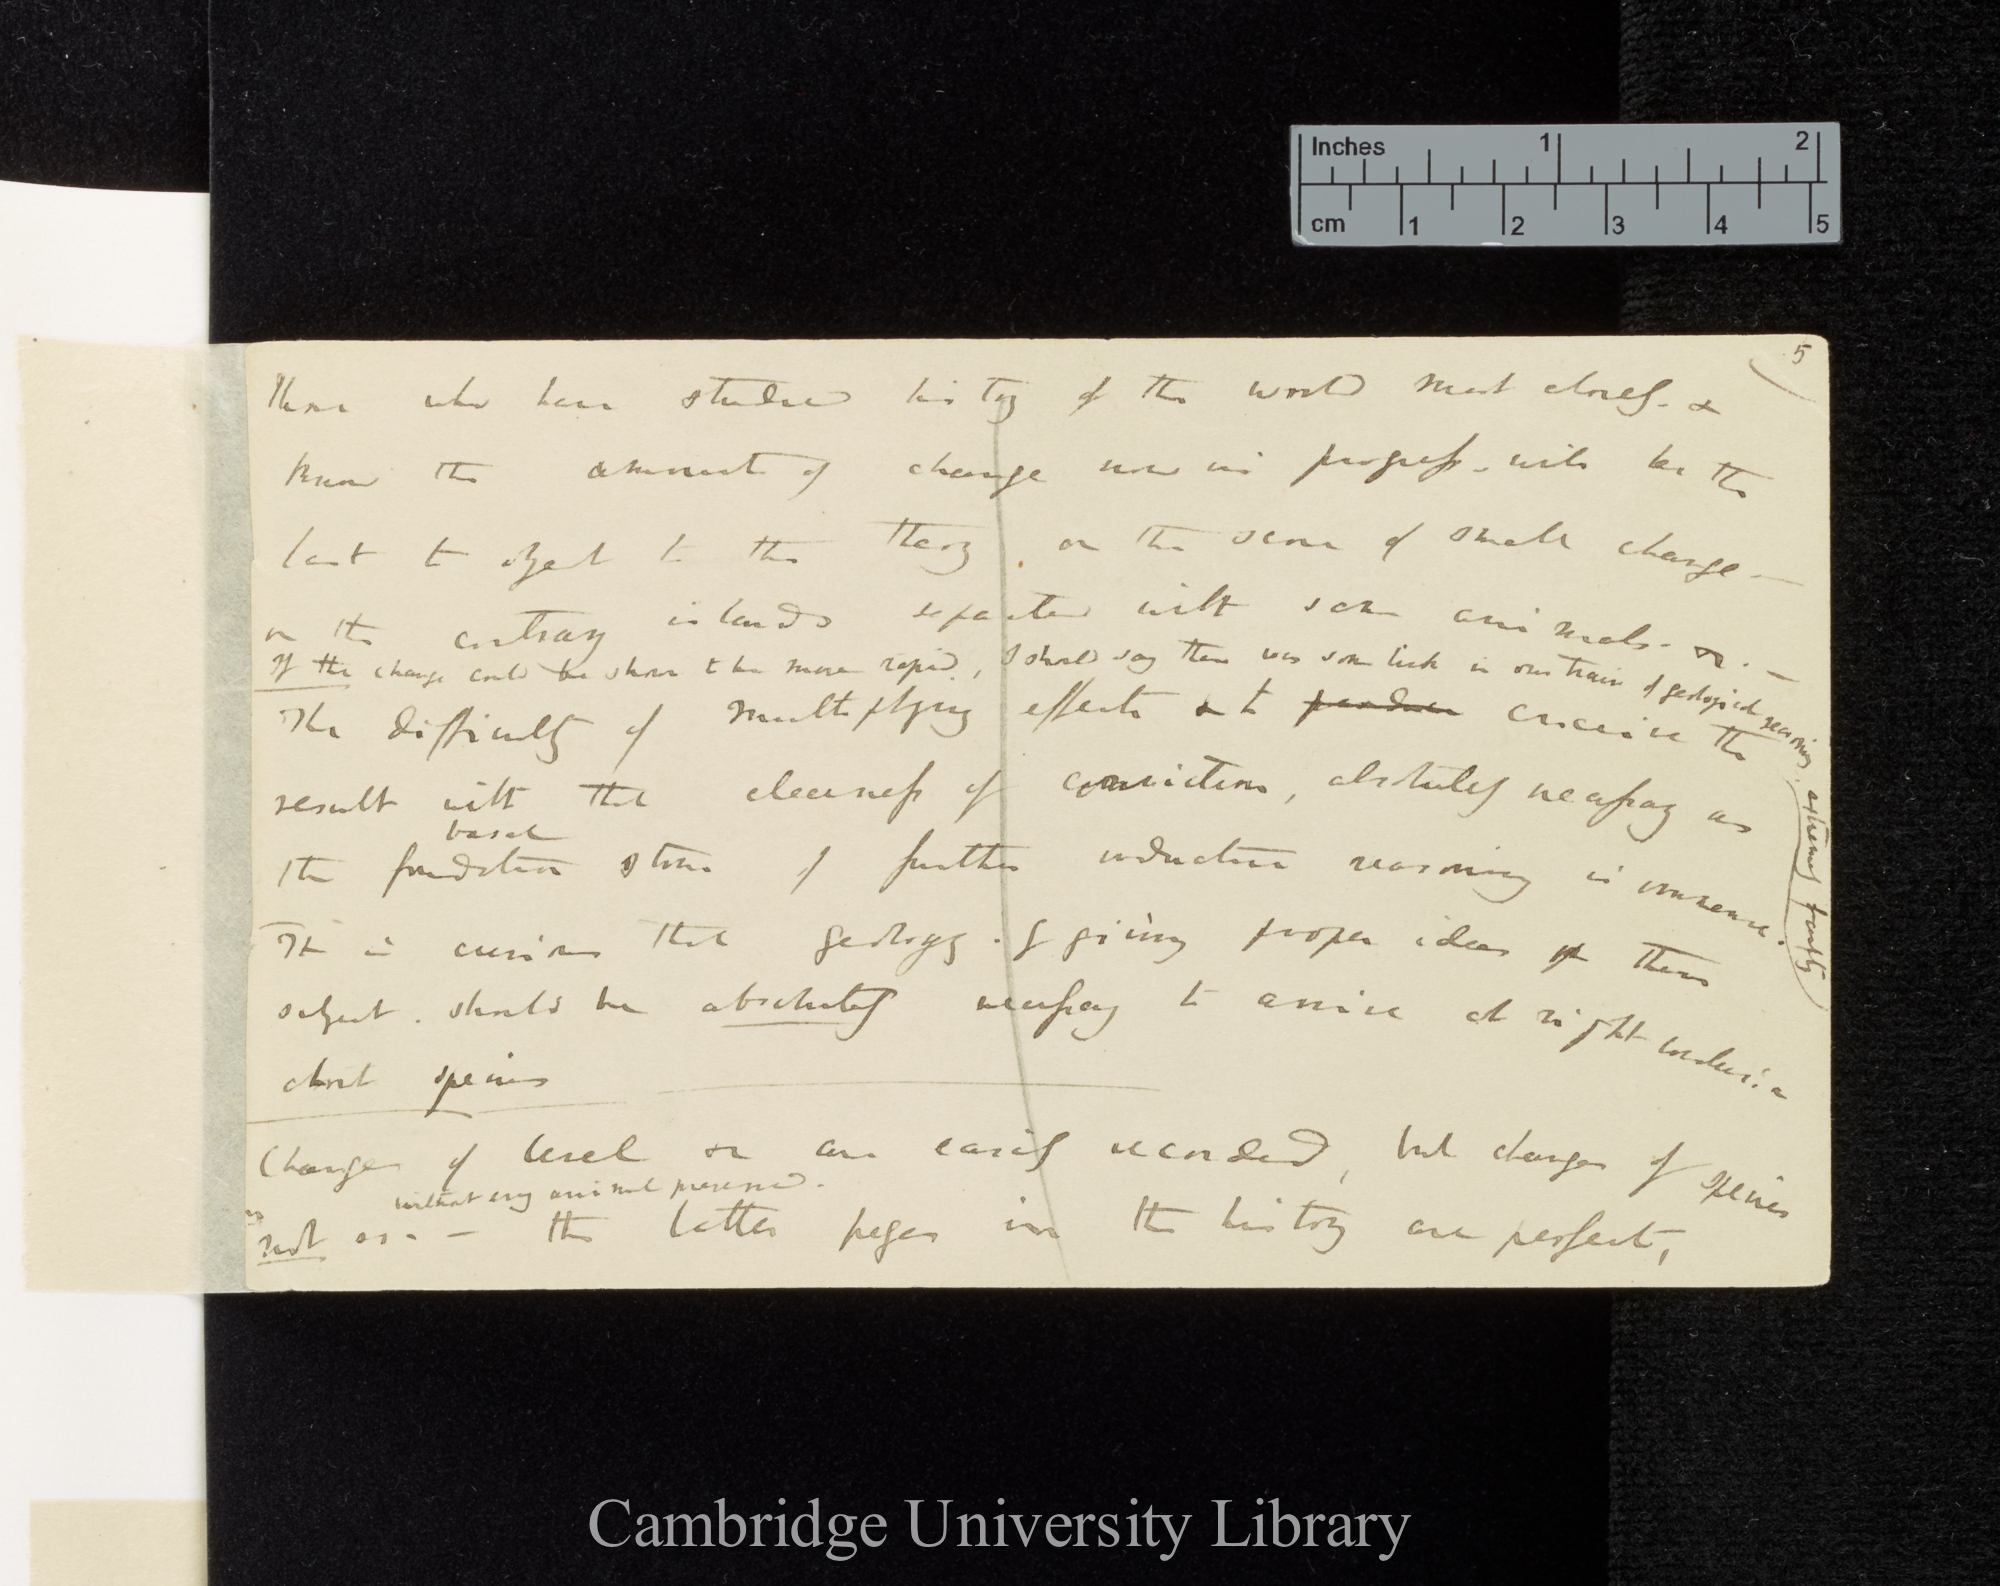 Inches 1 2
cm 1 2 3 4 5
5
Those who have studied history of the world most closely. &
know the amount of change now in progress. will be the
last to object to this theory on the score of small change —
on the contrary islands separated with some animals. &c. —
If the change could be shown to be more rapid, I should say there was some link in our train of geological reasoning, extremely faulty
The difficulty of multiplying effects & to conceive the
result with that clearness of conviction, absolutely necessary as
basal
the foundation stone of further inductive reasoning is immense.
It is curious that geology. by giving proper ideas of these
subject. should be absolutely necessary to arrive at right conclusion
about species
Changes of level &c are easily recorded, but changes of species
without every animal preserved.
not as. — the latter pages in the history are perfect,
Cambridge University Library